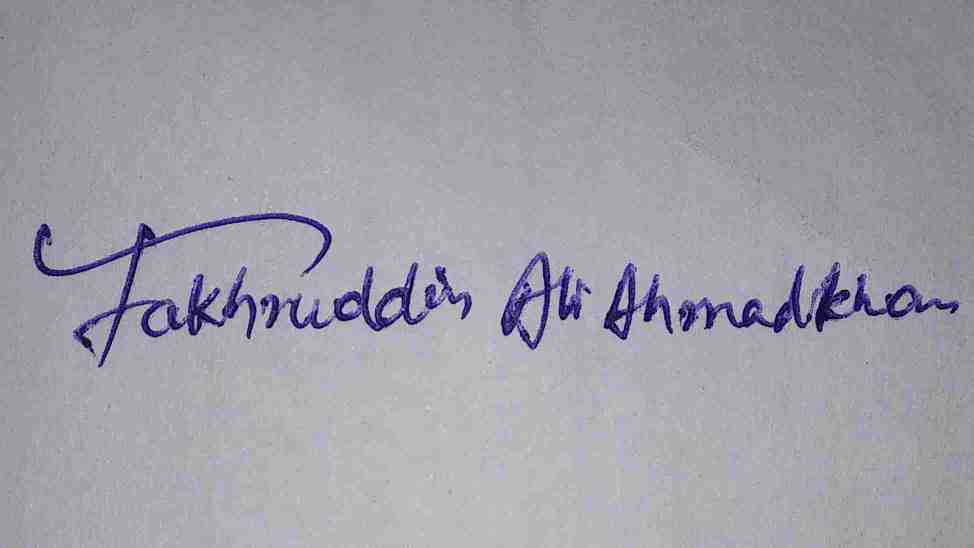 Fakhruddin Ali Ahmad Khan